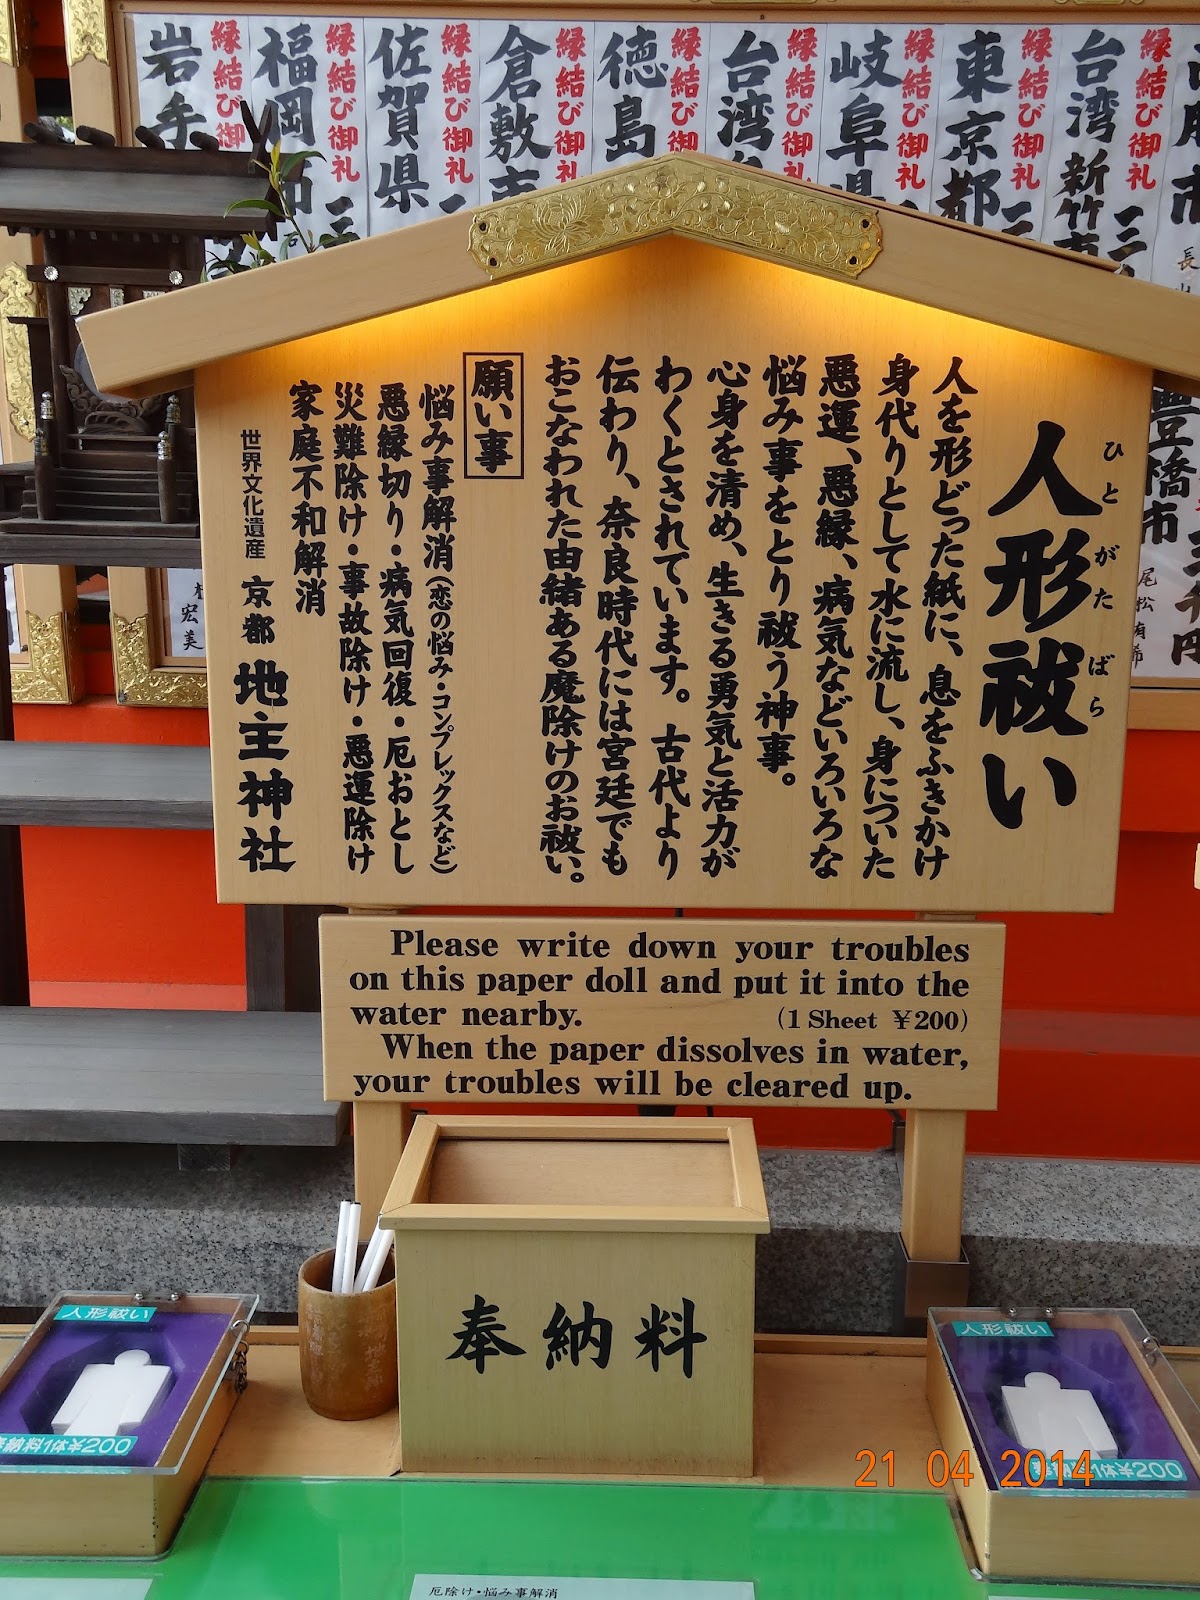 岩手
縁結び御礼
福岡
縁結び御礼
佐賀県
縁結び御礼
倉敷市
縁結び御礼
徳島
縁結び御礼
台湾
縁結び御礼
岐阜県
縁結び御礼
東京都
縁結び御礼
台湾 新竹市
縁結び御礼
豊橋市
尾松有希
宏美
人形祓い
ひとがたばら
人を形どった紙に、息をふきかけ
身代りとして水に流し、身についた
悪運、悪縁、病気などいろいろな
悩み事をとり祓う神事。
心身を清め、生きる勇気と活力が
わくとされています。古代より
伝わり、奈良時代には宮廷でも
おこなわれた由緒ある魔除けのお祓い。
願い事
悩み事解消(恋の悩み・コンプレックスなど)
悪縁切り・病気回復・厄おとし
災難除け・事故除け・悪運除け
家庭不和解消
世界文化遺産 京都 地主神社
Please write down your troubles
on this paper doll and put it into the
water nearby. (1 Sheet ¥200)
When the paper dissolves in water,
your troubles will be cleared up.
奉納料
人形祓い
奉納料1体¥200
人形祓い
奉納料1体¥200
21 04 2014
厄除け・悩み事解消